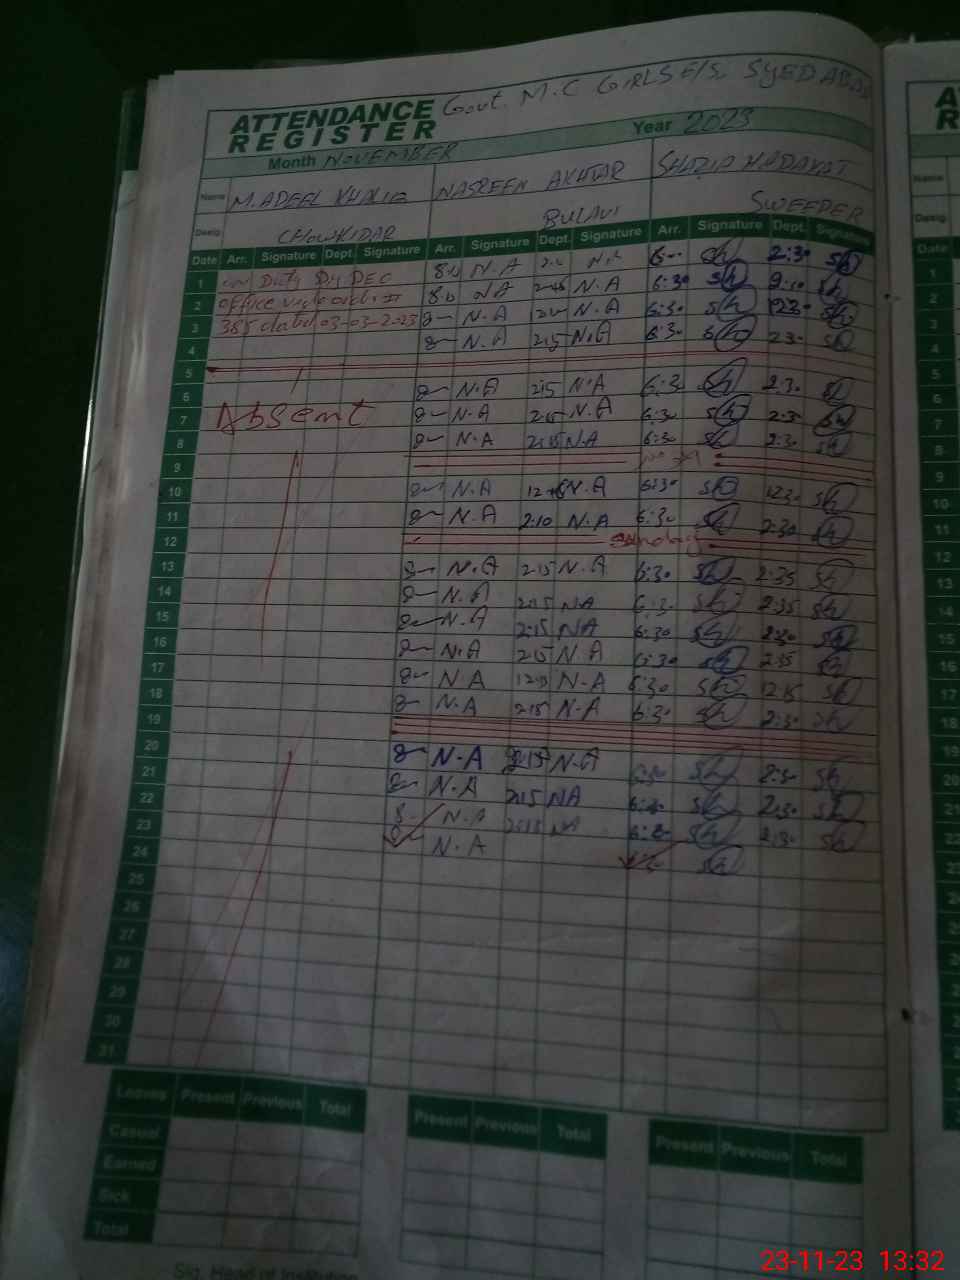 ATTENDANCE REGISTER Govt. M.C GIRLS E/S. SYEDABAD
Month NOVEMBER Year 2023
Name M. ADEEL KHALIQ NASREEN AKHTAR SHAZIA HADAYAT
Desig. CHOWKIDAR BULAVI SWEEPER
Date Arr. Signature Dept. Signature Arr. Signature Dept. Signature Arr. Signature Dept. Signature
1 on Duty Dy DEC N.A Sh 2:30 Sh
2 office vide order N.A N.A 6:30 Sh Sh
3 385 dated 03-03-2023 8 N.A N.A 6:30 Sh Sh
4 8 N.A 2:15 N.A 6:30 Sh 2:30 Sh
5
6 8 N.A 2:15 N.A 6:30 Sh 2:30 Sh
7 Absent 8 N.A 2:15 N.A 6:30 Sh 2:30 Sh
8 8 N.A 2:15 N.A 6:30 Sh 2:30 Sh
9
10 8 N.A N.A 6:30 Sh 12:30 Sh
11 8 N.A 2:10 N.A 6:30 Sh 2:30 Sh
12 Sunday
13 8 N.A 2:15 N.A 6:30 Sh 2:35 Sh
14 8 N.A 2:15 NA 6:30 Sh 2:35 Sh
15 8 N.A 2:15 NA 6:30 Sh 2:30 Sh
16 8 N.A 2:15 N.A 6:30 Sh 2:35 Sh
17 8 N.A N.A 6:30 Sh 12:15 Sh
18 8 N.A 2:15 N.A 6:30 Sh 2:30 Sh
19
20 8 N.A 2:15 N.A Sh 2:30 Sh
21 8 N.A 2:15 NA Sh 2:30 Sh
22 8 N.A NA Sh 2:30 Sh
23 8 N.A Sh
24
25
26
27
28
29
30
31
Leaves Present Previous Total Present Previous Total Present Previous Total
Casual
Earned
Sick
Total
Sig. Head of Institution
23-11-23 13:32